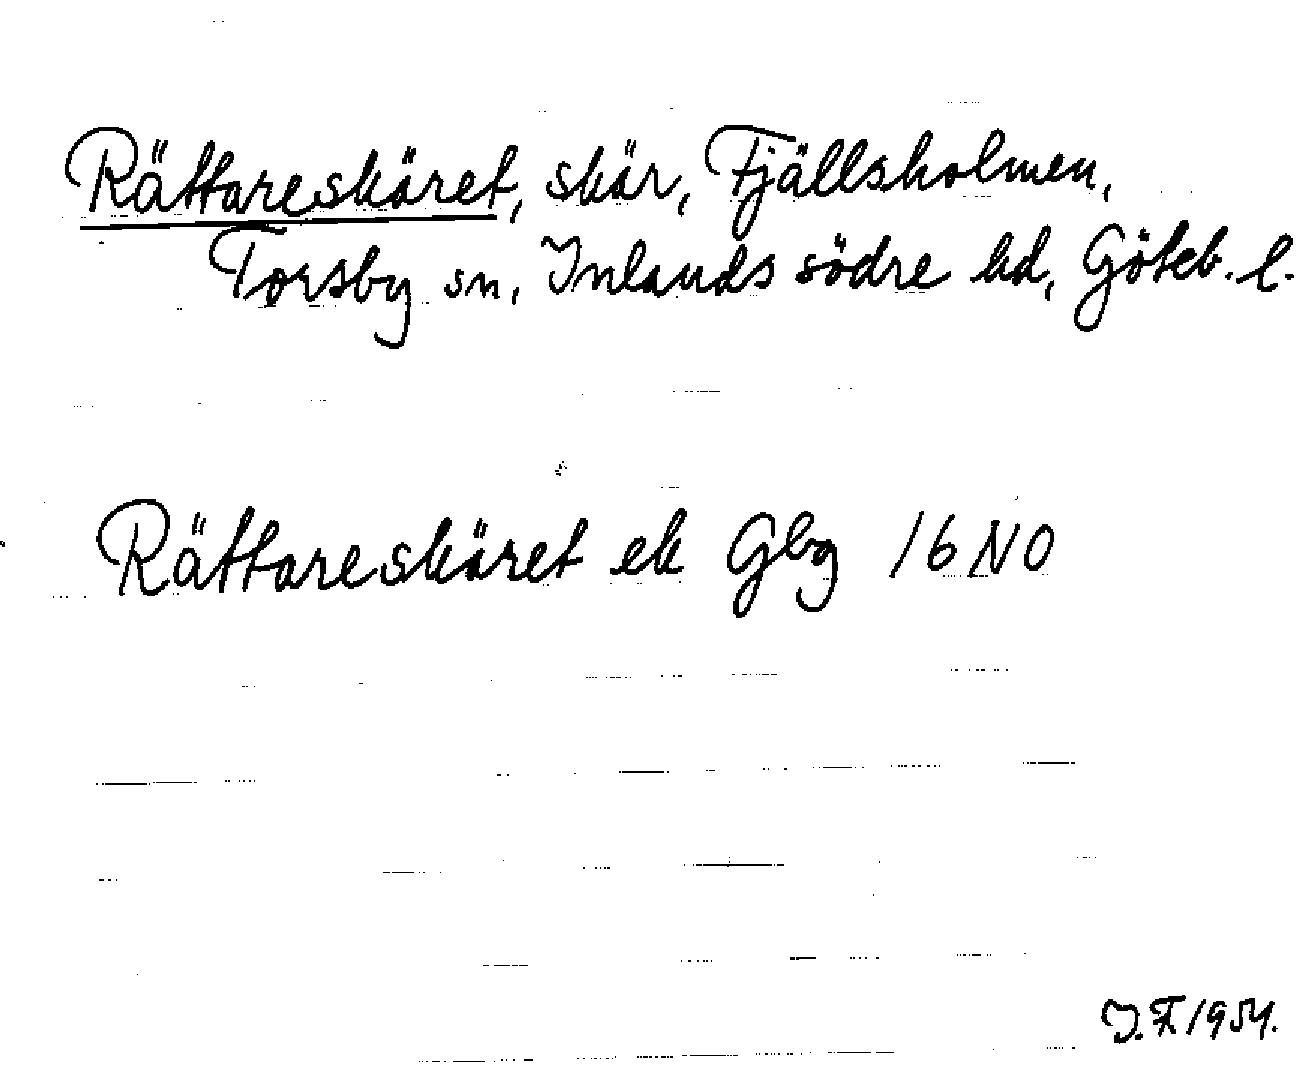 Rättareskäret, skär, Fjällsholmen,
Torsby sn, Inlands södre hd, Göteb. l.
Rättareskäret ek Gbg 16 NO
J.F. 1954.